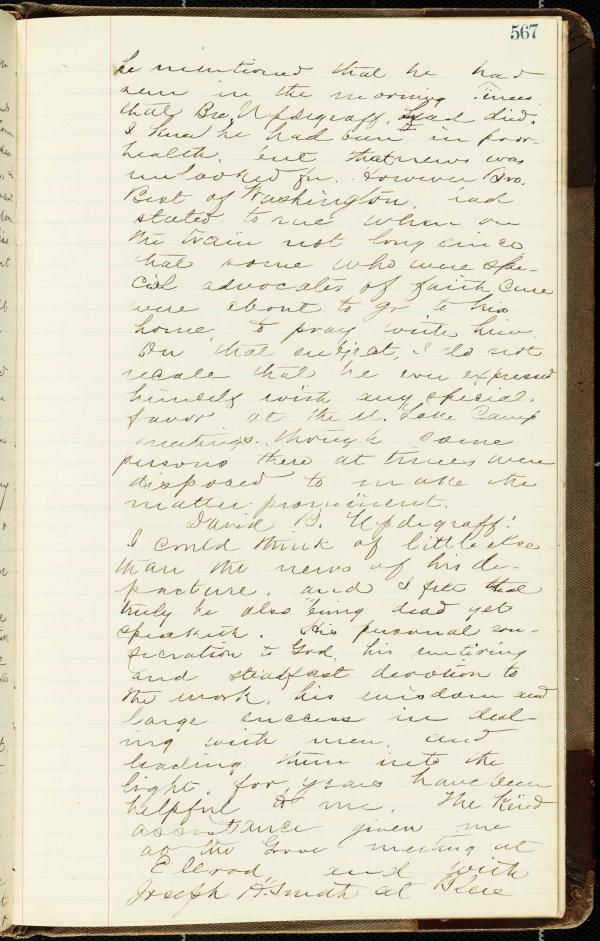 567
he mentioned that he had
seen in the morning Times,
that Bro. Updegraff, had died.
I knew he had been in poor
health, but that news was
unlooked for. However Bro.
Best of Washington, had
stated to me when on
the train not long since
that some who were spe-
cial advocates of faith cure
were about to go to his
home, to pray with him.
On that subject, I do not
recale that he ever expressed
himself with any special
favor at the M. Lake Camp
meetings. though some
persons there at times were
disposed to make the
matter prominent.
David B. Updegraff!
I could think of little else
than the news of his de-
parture, and I felt that
truly he also being dead yet
speaketh. His personal con-
secration to God, his untiring
and steadfast devotion to
the work, his wisdom and
large success in deal-
ing with men, and
leading them into the
light, for years have been
helpful to me. The kind
assistance given me
at the Grove meeting at
Elrod, and with
Joseph H. Smith at Blue